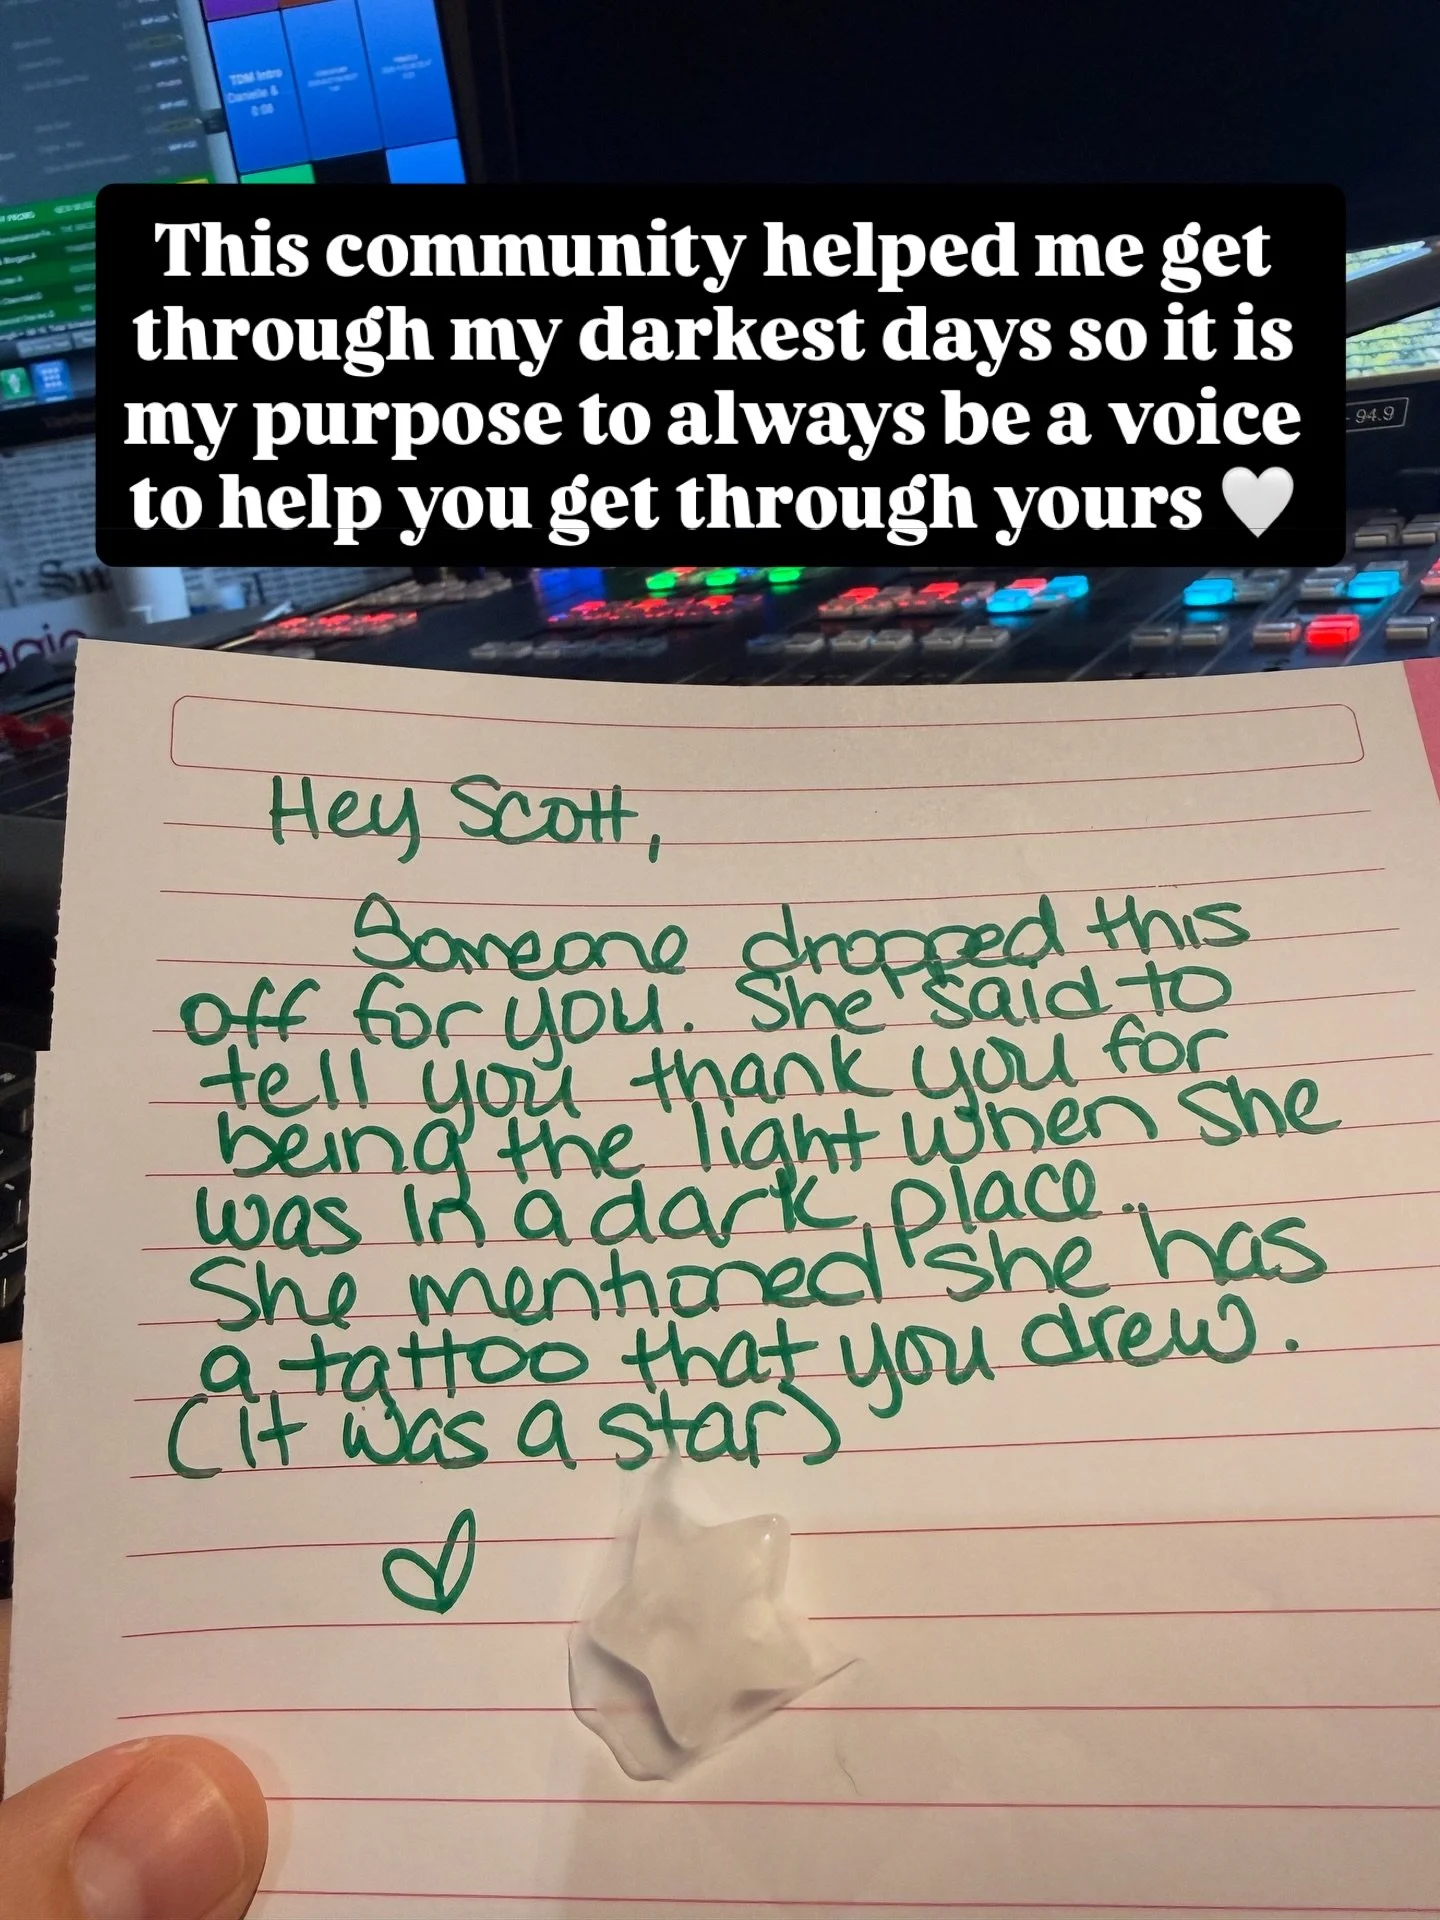 TDM Intro
Danielle &
0:08
This community helped me get
through my darkest days so it is
my purpose to always be a voice
to help you get through yours 🤍
94.9
Hey Scott,
Someone dropped this
off for you. She said to
tell you thank you for
being the light when she
was in a dark place.
She mentioned she has
a tattoo that you drew.
(it was a star)